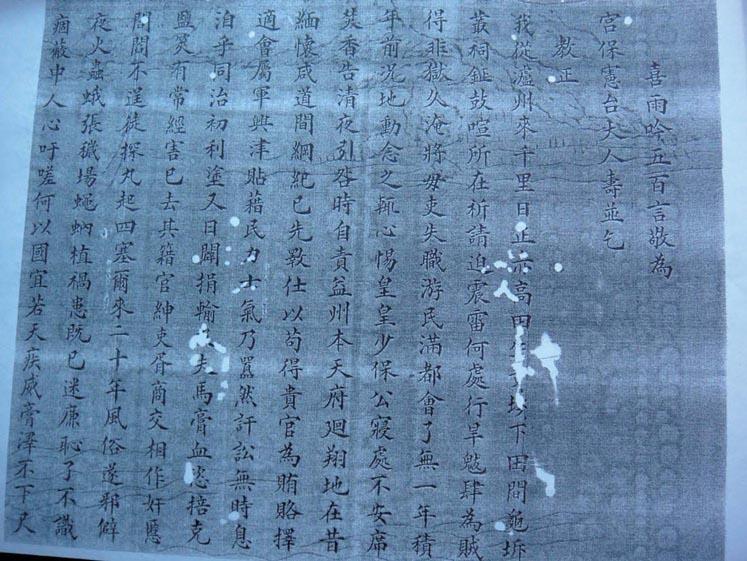 喜雨吟五百言敬為
宮保憲台大人壽並乞
教正
我從瀘州來千里日正 高田 坟下田間龜坼
叢祠鉦鼓喧所在祈請迫震雷何處行旱魃肆為賊
得非獄久淹將毋吏失職游民滿都會了無一年積
年前況地動念之輒心惕皇皇少保公寢處不安席
焚香告清夜引咎時自責益州本天府廻翔地在昔
緬懷咸道間綱紀已先斁仕以苟得貴官為賄賂擇
適會屬軍興津貼藉民力士氣乃囂然訐訟無時息
泊乎同治初利塗又日闢捐輸 夫馬膏血恣掊克
鹽筴有常經害巴去其籍官紳吏胥商交相作奸慝
閭閻不逞徒探丸起四塞爾來二十年風俗遂邪僻
夜火蟲蛾張穢場蠅蚋植禍患既已迷廉恥了不識
痼蔽中人心吁嗟何以國宜若天疾威膏澤不下尺